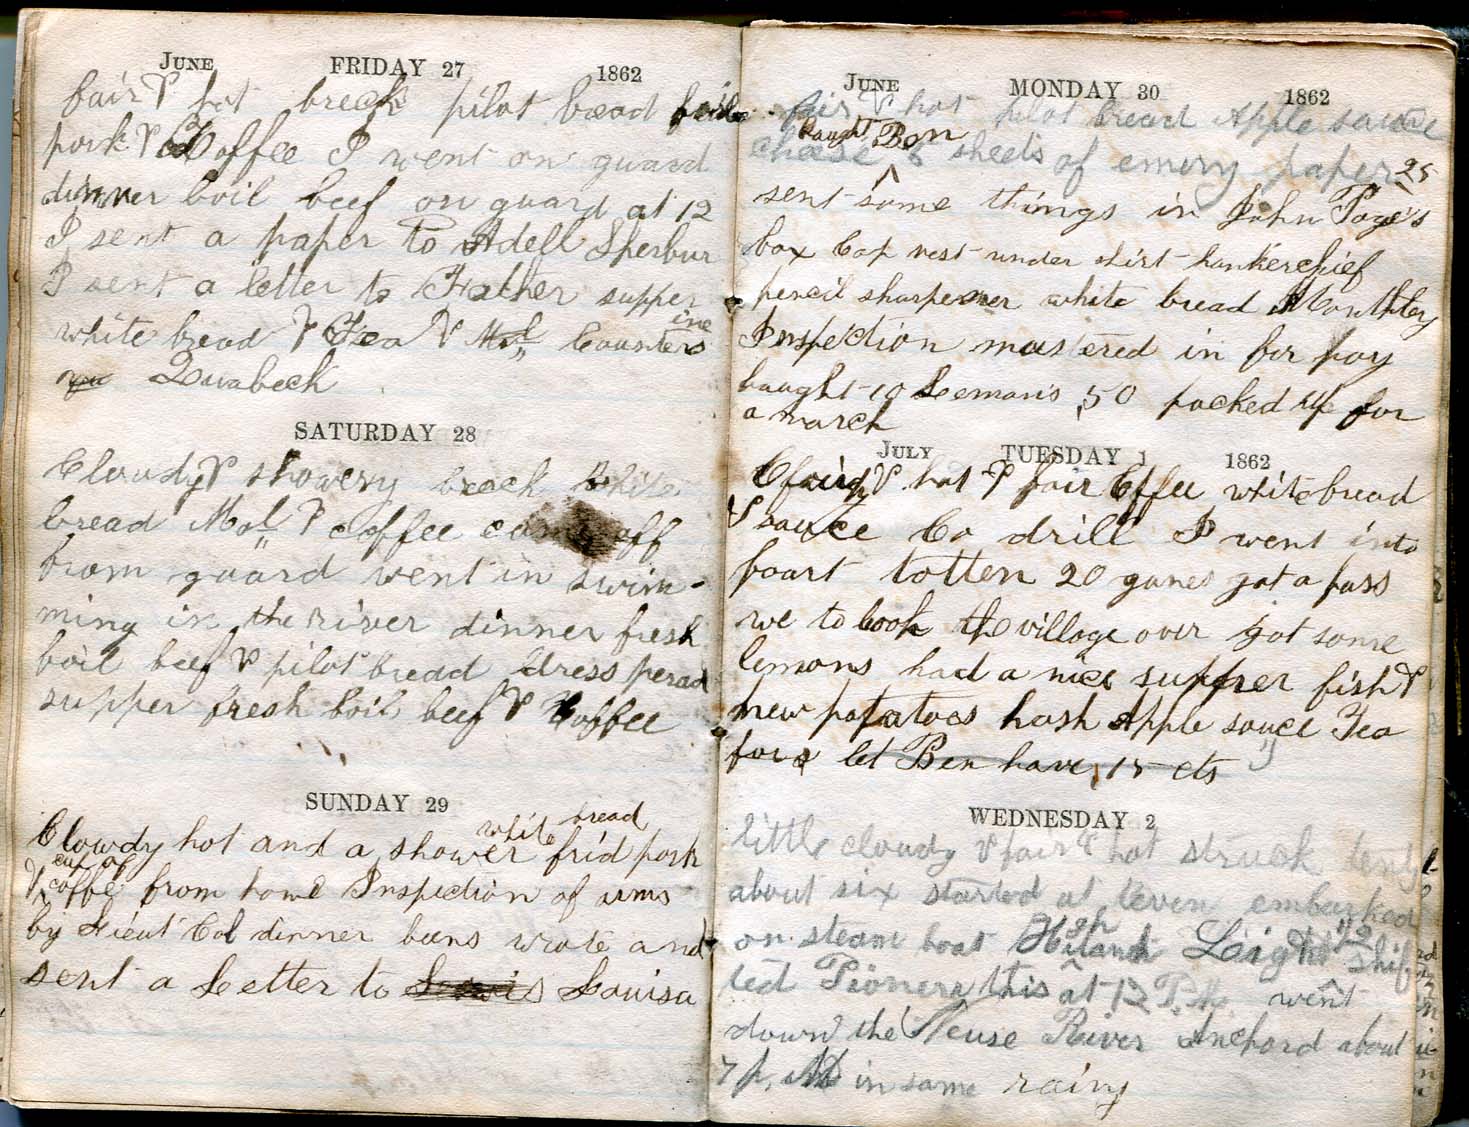 JUNE FRIDAY 27 1862
fair & hot breck pilot bread
pork & Coffee I went on guard
dinner boil beef on guard at 12
I sent a paper to Adell Sperbur
I sent a letter to Father supper
white bread & Tea & Mol Counters
ine
Quabeck
SATURDAY 28
Cloudy & showery breck white
bread Mol & coffee off
from guard went in swim-
ming in the river dinner fresh
boil beef & pilot bread dress perad
supper fresh boil beef & Coffee
SUNDAY 29
white bread
Clowdy hot and a shower frid pork
cup of
& coffee from home Inspection of arms
by Lieut Col dinner beens wrote and
sent a Letter to Louisa
JUNE MONDAY 30 1862
fair & hot pilot bread Apple sauce
baught Ben
chease 6 sheets of emery paper 25
sent some things in John Page's
box Cap vest under shirt hankerchief
pencil sharpener white bread Monthley
Inspection mustered in for pay
baught 10 Lemons 50 packed up for
a march
JULY TUESDAY 1 1862
& hot & fair Coffee white bread
& sauce Co drill I went into
foart totten 20 guns got a pass
we to look the village over got some
lemons had a nice supper fish &
new potatoes hash Apple sauce Tea
for let Ben have 15 cts
WEDNESDAY 2
little cloudy & fair & hot struck tents
about six started at leven embarked
on steam boat Hiland Light shif
ted Pioneer this at 12 P.M. went
down the Neuse River Anchord about
7 P.M in some rainy